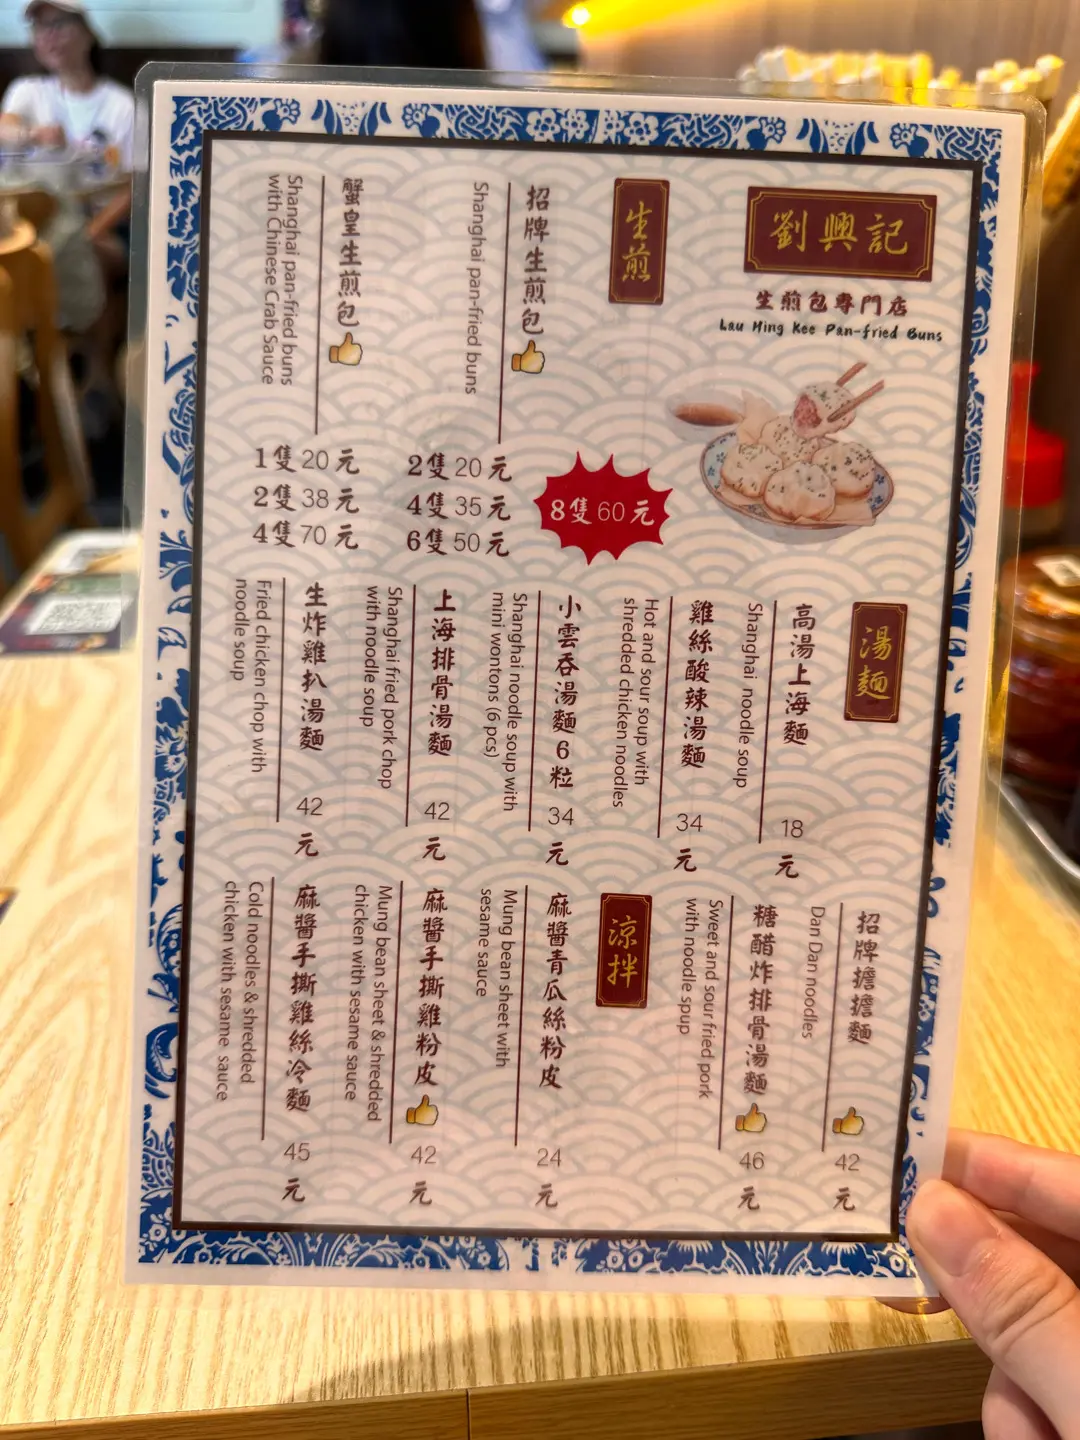 劉興記
生煎包專門店
Lau Hing Kee Pan-fried Buns
生煎
招牌生煎包
Shanghai pan-fried buns
2隻 20 元
4隻 35 元
6隻 50 元
8隻 60 元
蟹皇生煎包
Shanghai pan-fried buns
with Chinese Crab Sauce
1隻 20 元
2隻 38 元
4隻 70 元
湯麵
高湯上海麵
Shanghai noodle soup
18 元
雞絲酸辣湯麵
Hot and sour soup with
shredded chicken noodles
34 元
小雲吞湯麵6粒
Shanghai noodle soup with
mini wontons (6 pcs)
34 元
上海排骨湯麵
Shanghai fried pork chop
with noodle soup
42 元
生炸雞扒湯麵
Fried chicken chop with
noodle soup
42 元
招牌擔擔麵
Dan Dan noodles
42 元
糖醋炸排骨湯麵
Sweet and sour fried pork
with noodle spup
46 元
涼拌
麻醬青瓜絲粉皮
Mung bean sheet with
sesame sauce
24 元
麻醬手撕雞粉皮
Mung bean sheet & shredded
chicken with sesame sauce
42 元
麻醬手撕雞絲冷麵
Cold noodles & shredded
chicken with sesame sauce
45 元